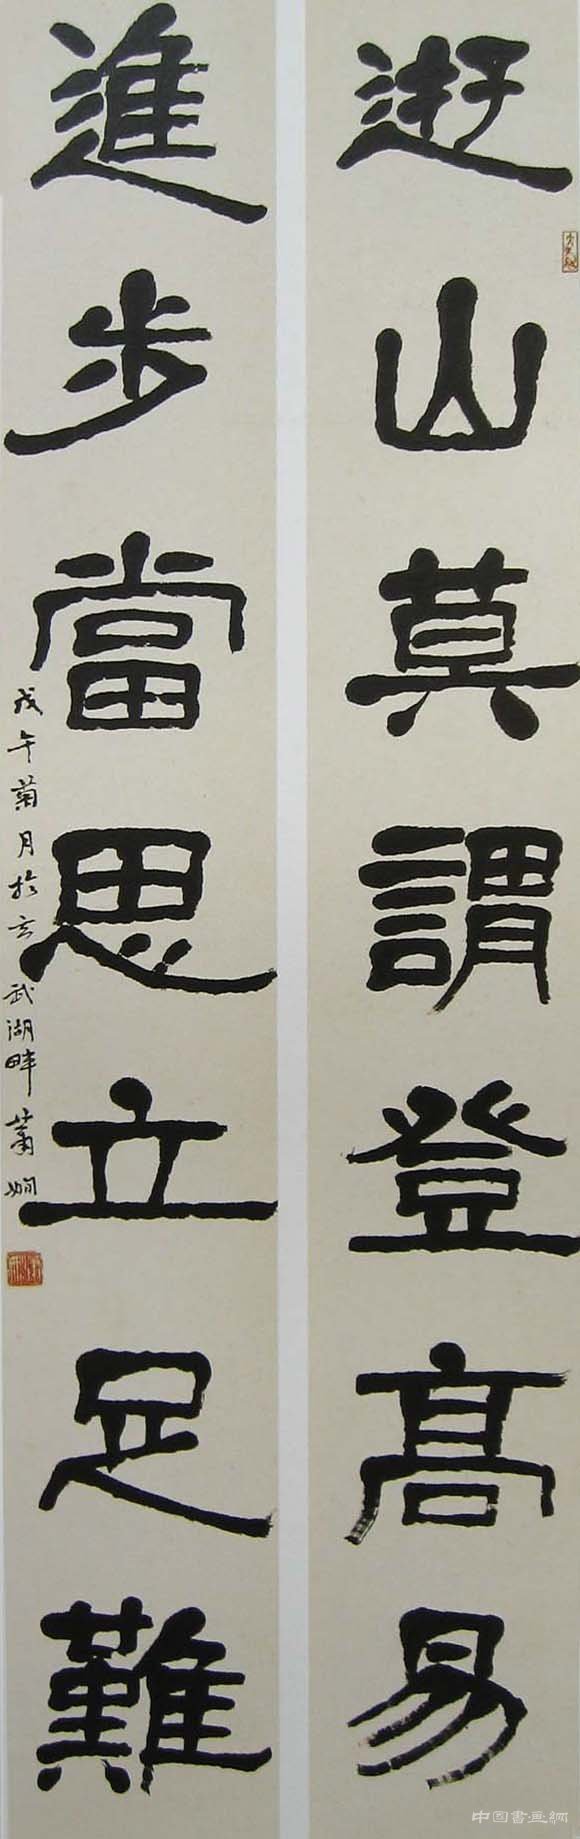 遊山莫謂登高易
進步當思立足難
戊午菊月於玄武湖畔蕭嫻
中国書画網